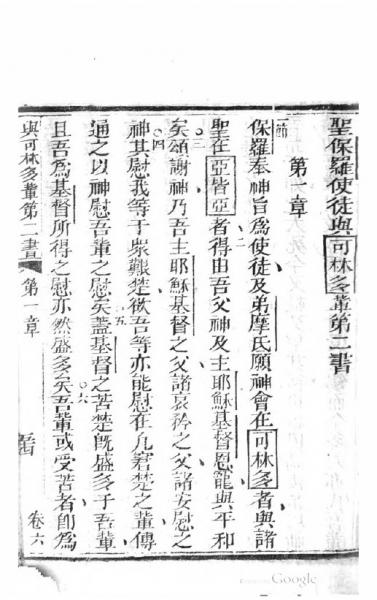 聖保羅使徒與可林多輩第二書
第一章
節一保羅奉神旨為使徒及弟摩氏願神會在可林多者與諸
聖在亞皆亞者二得由吾父神及主耶穌基督恩寵與平和
矣三頌謝神乃吾主耶穌基督之父諸哀矜之父諸安慰之
神四其慰我等于眾艱楚欲吾等亦能慰在凡窘楚之輩傳
通之以神慰吾輩之慰矣五蓋基督之苦楚既盛多于吾輩
且吾為基督所得之慰亦然盛多矣六吾輩或受苦者即為
與可林多輩第二書 第一章 卷六
Google